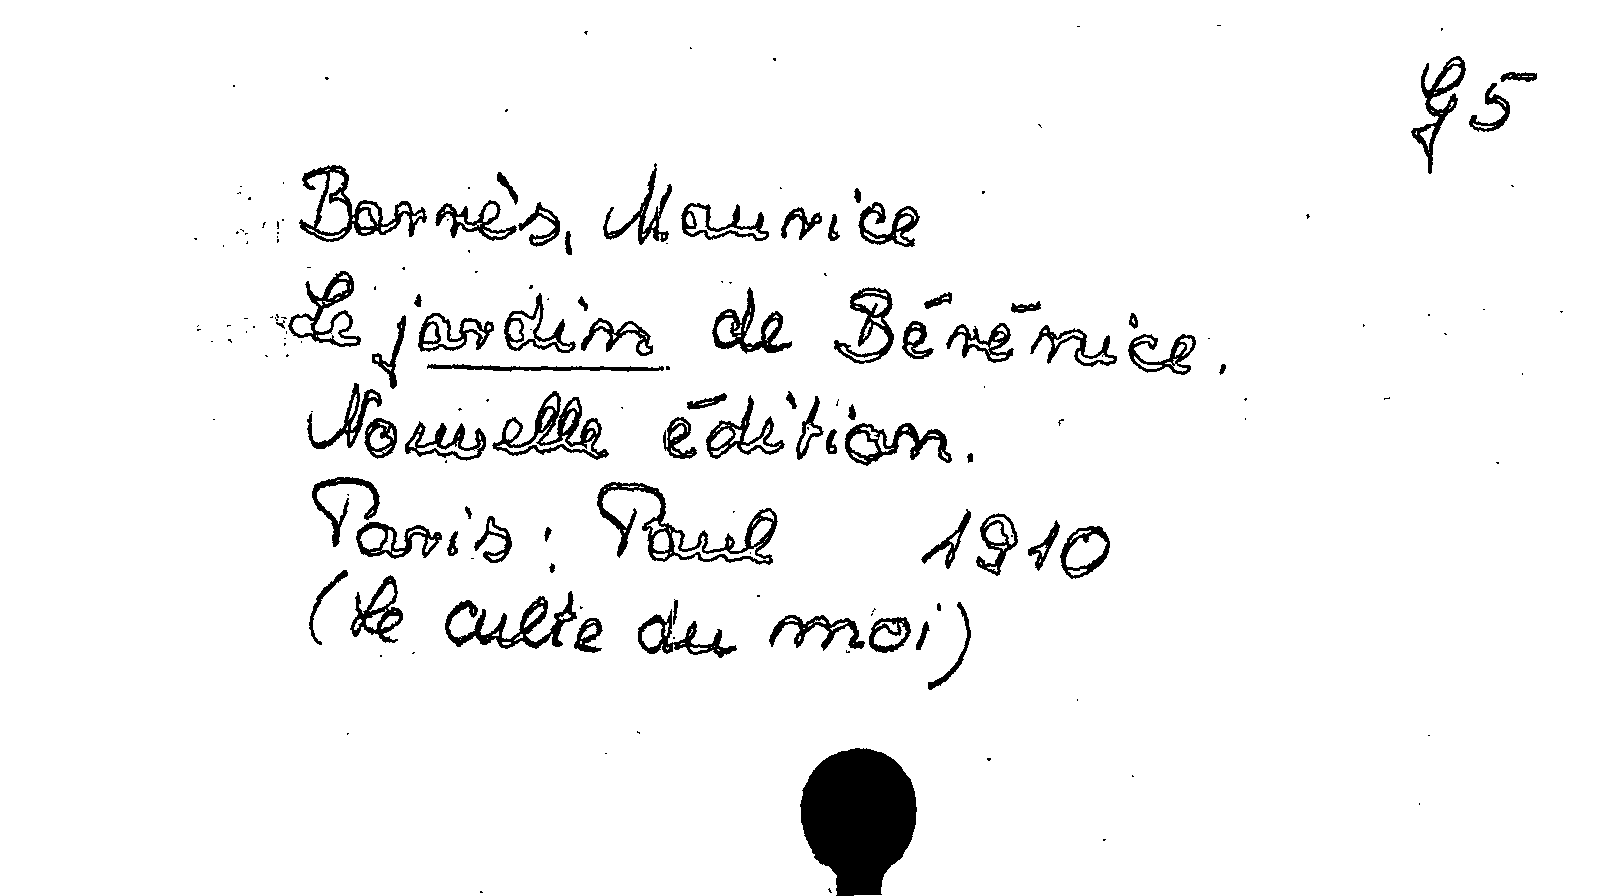 G 5
Barrès, Maurice
Le jardin de Bérénice.
Nouvelle édition.
Paris: Paul 1910
(Le culte du moi)